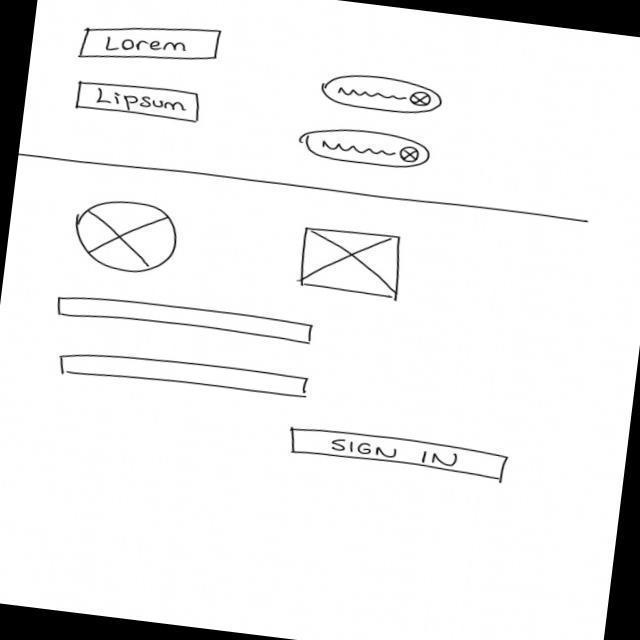 Lorem
Lipsum
SIGN IN